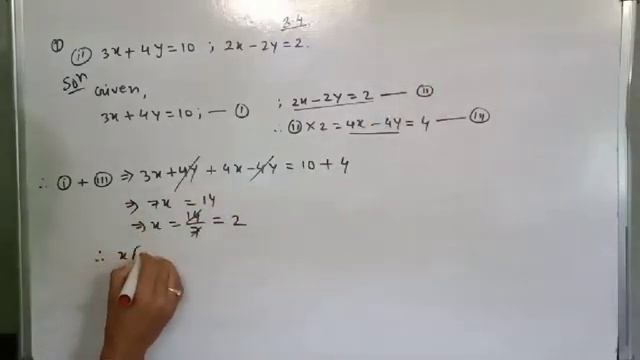 3.4
① ⓘⓘ 3x + 4y = 10 ; 2x - 2y = 2.
Solⁿ Given,
3x + 4y = 10 ; — ⓘ ; 2x - 2y = 2 — ⓘⓘ
∴ ⓘⓘ × 2 = 4x - 4y = 4 — ⓘⓘⓘ
∴ ⓘ + ⓘⓘⓘ ⇒ 3x + 4y + 4x - 4y = 10 + 4
⇒ 7x = 14
⇒ x = 14/7 = 2
∴ x(